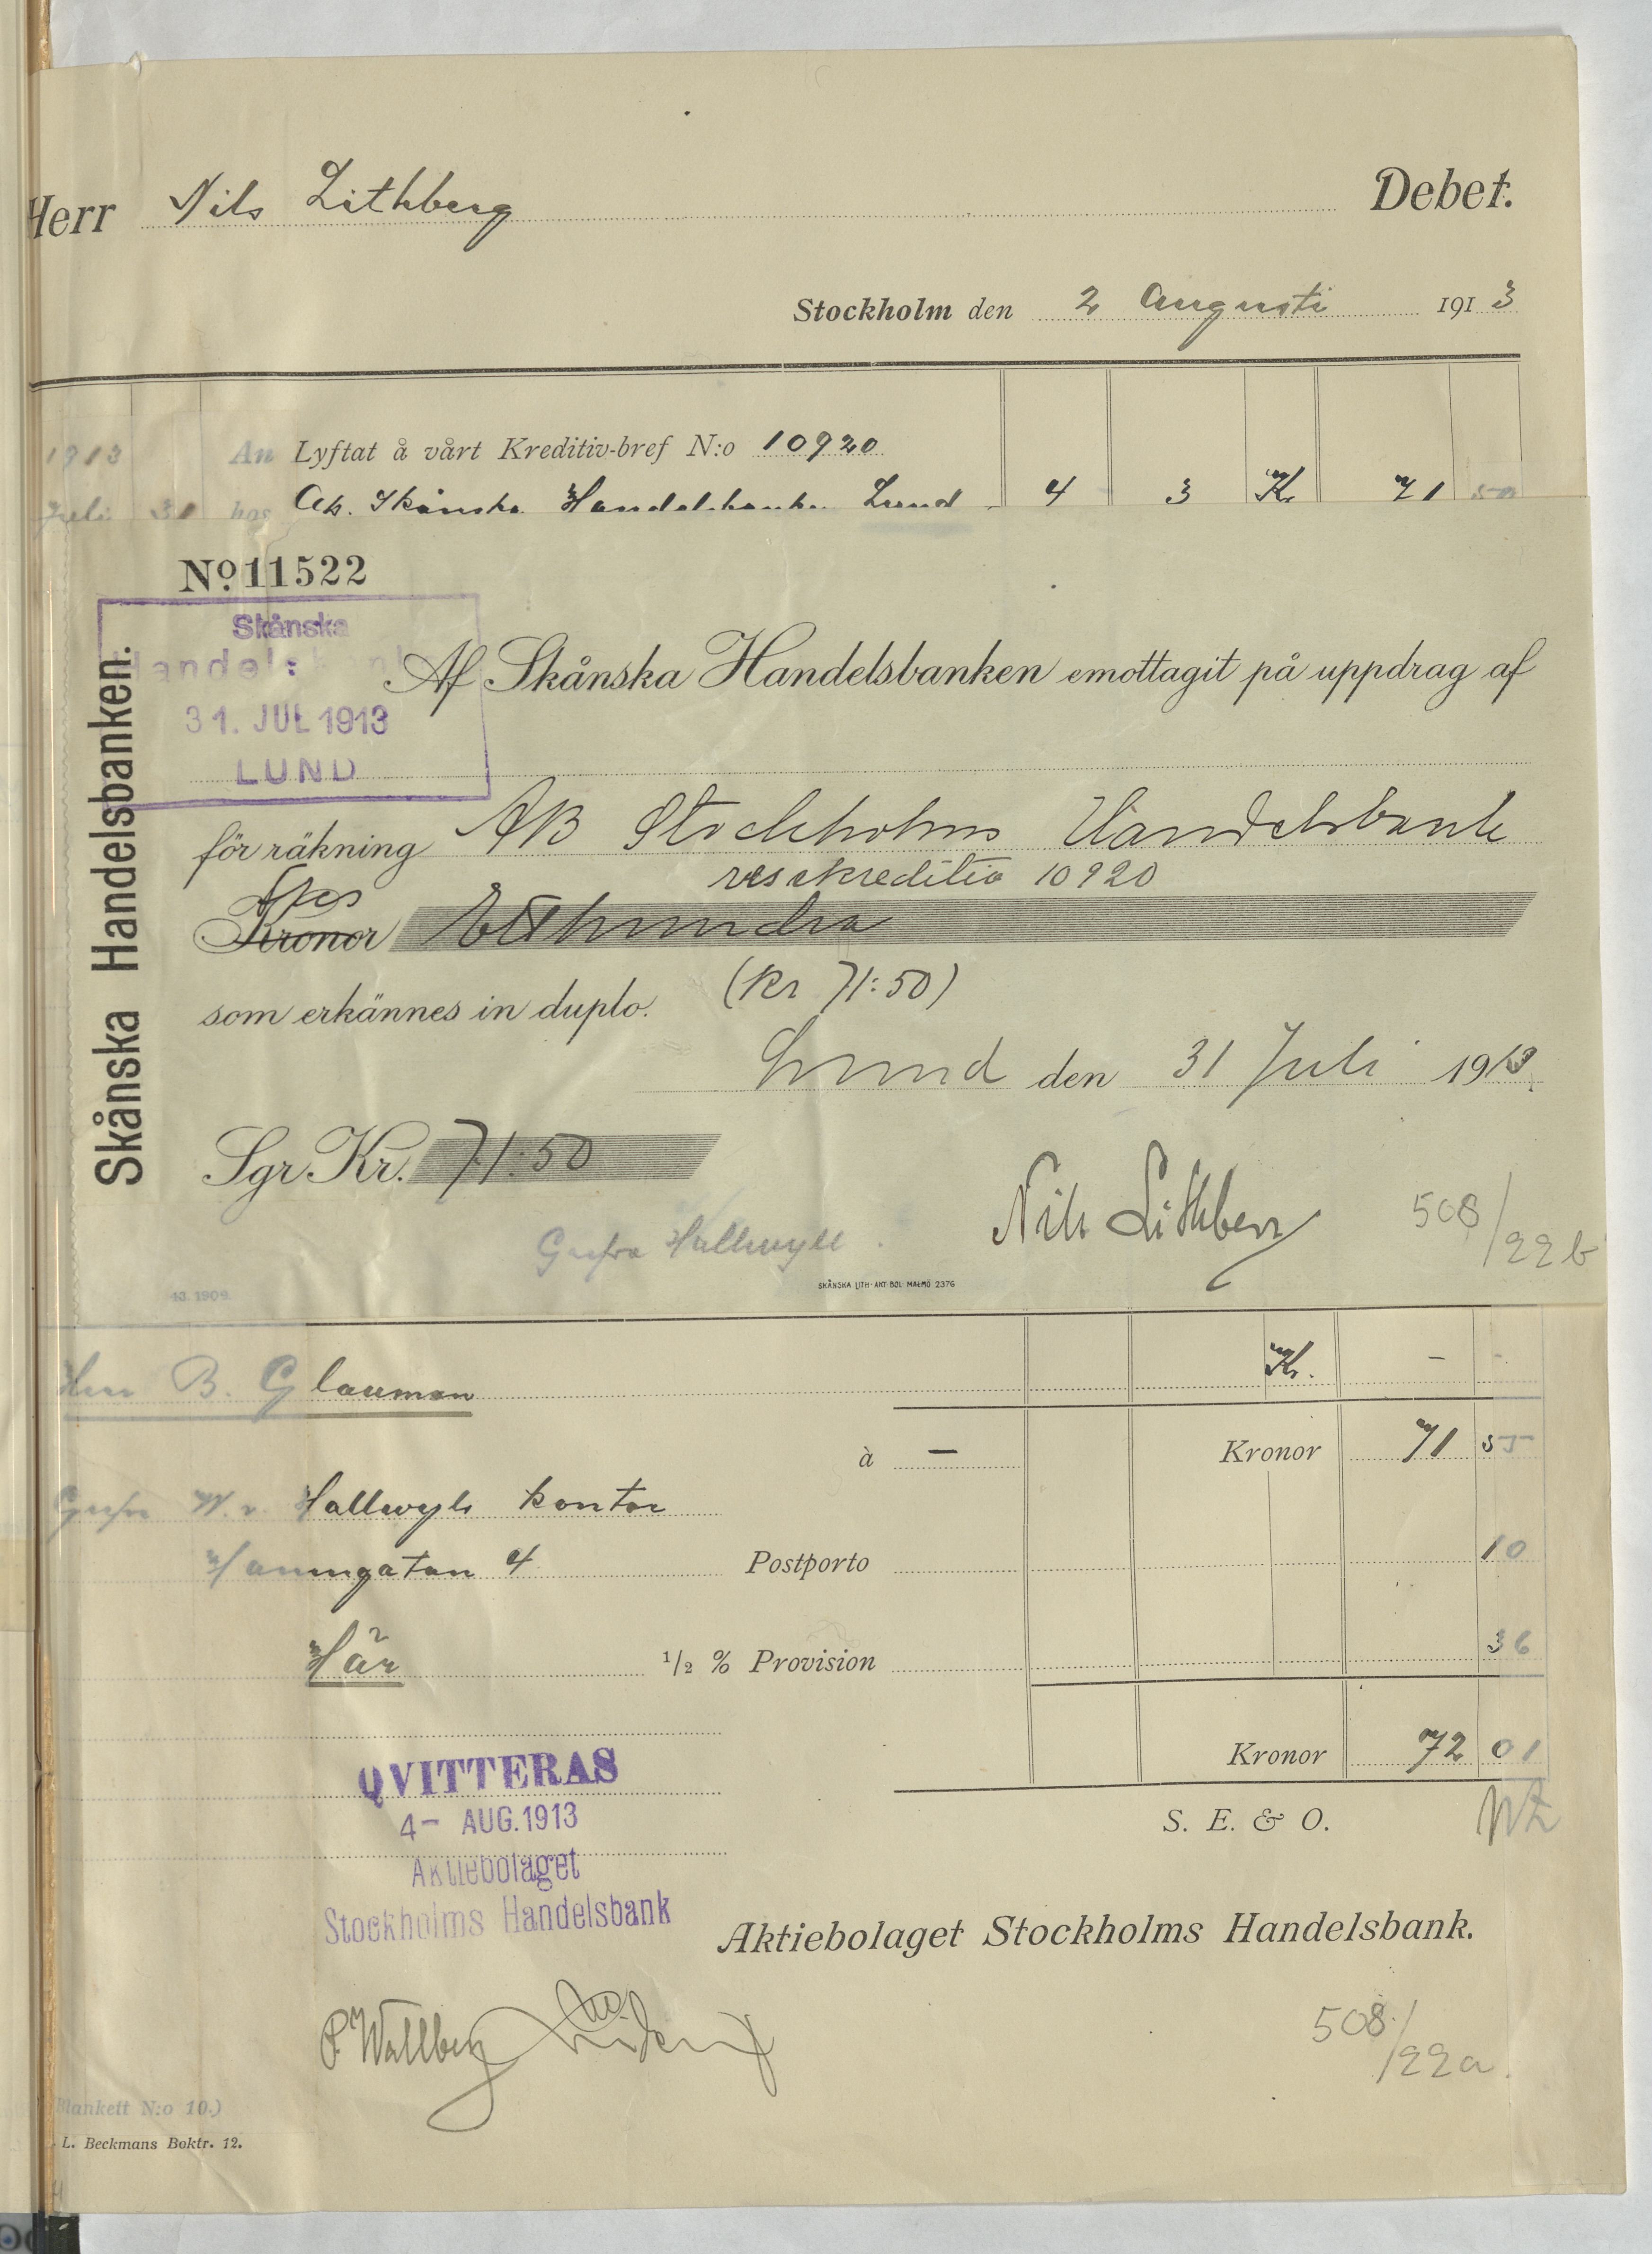 Herr Nils Lithberg Debet.
Stockholm den 2 Augusti 1913
1913 An Lyftat å vårt Kreditiv-bref N:o 10920
Juli 31 hos Ab. Skånska Handelsbanken Lund 4 3 Kr 71 50
No. 11522
Skånska
Handelsbank
31. JUL 1913
LUND
Skånska Handelsbanken.
Af Skånska Handelsbanken emottagit på uppdrag af
för räkning AB Stockholms Handelsbank
resekreditiv 10920
Kronor Etthundra
(Kr 71:50)
som erkännes in duplo.
Lund den 31 Juli 1913.
Sgr Kr. 71:50
Nils Lithberg
508/22b
Grefve Hallwyll
SKÅNSKA LITH. AKT. BOL. MALMÖ 2376
13. 1909.
Kr. - -
Herr B. Glauman
à — Kronor 71 55
W. v. Hallwyls kontor
Hamngatan 4 Postporto 10
Här 1/2 % Provision 36
Kronor 72 01
QVITTERAS
4- AUG. 1913
Aktiebolaget
Stockholms Handelsbank
S. E. & O.
Aktiebolaget Stockholms Handelsbank.
P. Wallberg
508/22a.
Blankett N:o 10.)
L. Beckmans Boktr. 12.